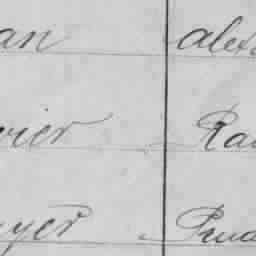 an alex
vier Ra
yer Prud